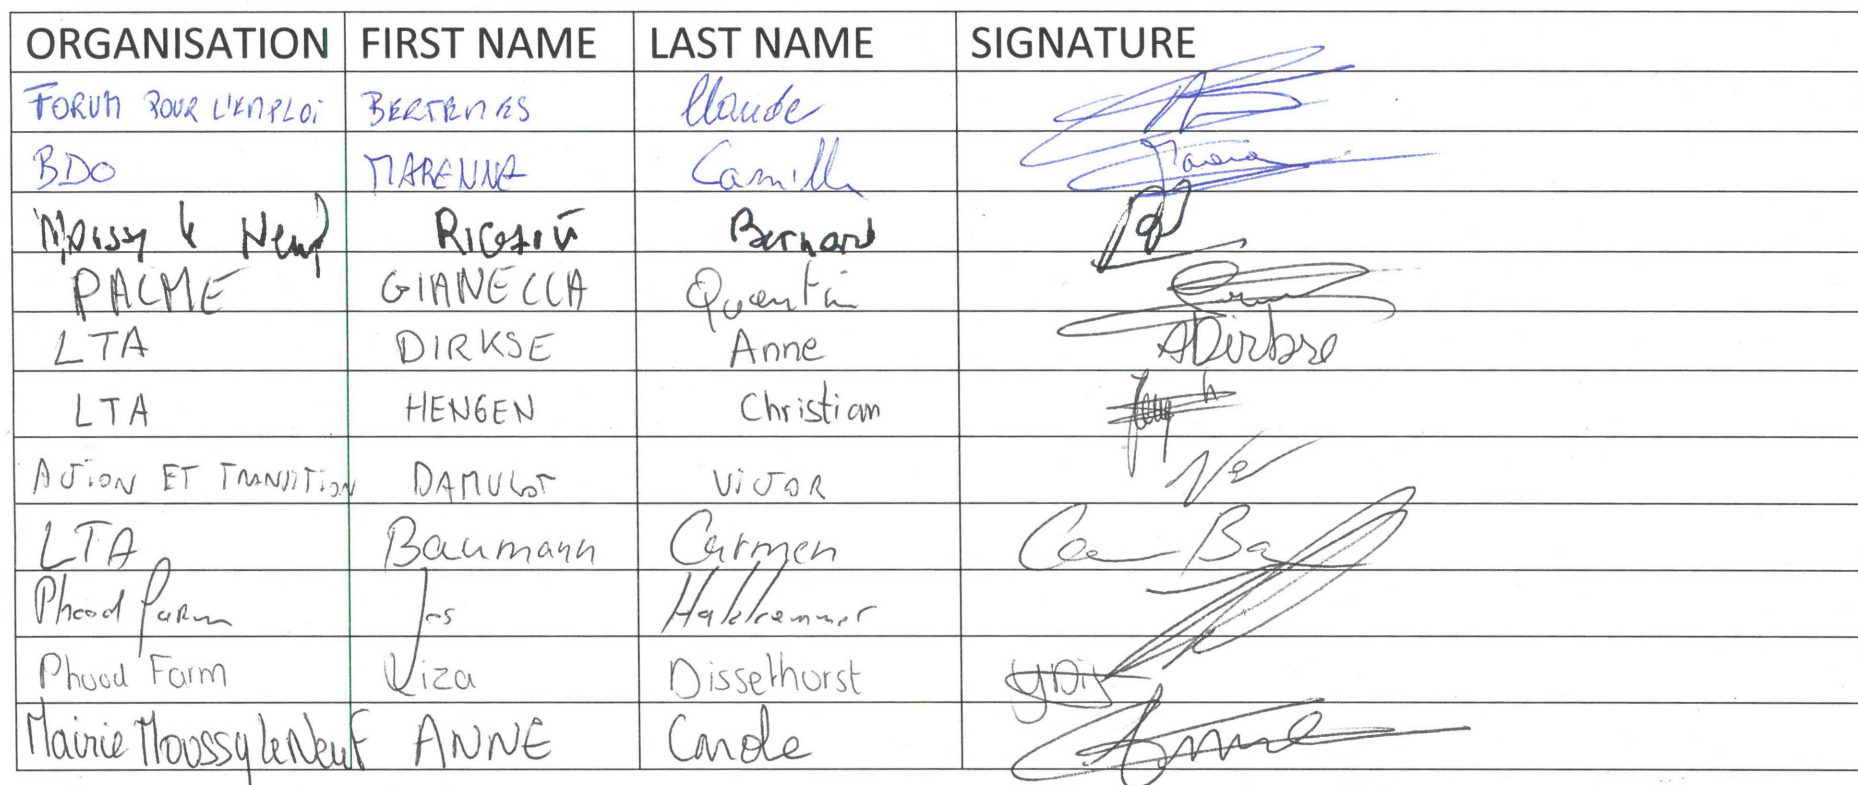 ORGANISATION FIRST NAME LAST NAME SIGNATURE
FORUM POUR L'EMPLOI BERTEMES Claude
BDO MARENNE Camille
Moussy le Neuf Bernard
PACME GIANECCA Quentin
LTA DIRKSE Anne ADirkse
LTA HENGEN Christian
ACTION ET TRANSITION DAMULOT VICTOR
LTA Baumann Carmen Ca Ba
Phood farm Jos Hakkennes
Phood Farm Yiza Disselhorst
Mairie Moussy le Neuf ANNE Carole